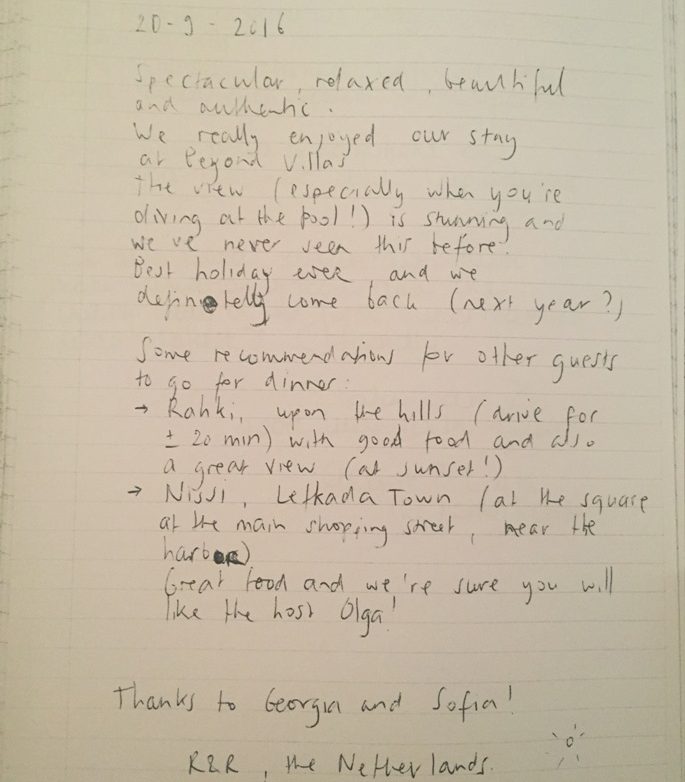 20-9-2016
Spectacular, relaxed, beautiful
and authentic.
We really enjoyed our stay
at Beyond Villas
The view (especially when you're
diving at the pool!) is stunning and
we've never seen this before!
Best holiday ever, and we
definitelly come back (next year?)
Some recommendations for other guests
to go for dinner:
→ Rahki, upon the hills (drive for
± 20 min) with good food and also
a great view (at sunset!)
→ Nissi, Lefkada Town (at the square
at the main shopping street, near the
harbor)
Great food and we're sure you will
like the host Olga!
Thanks to Georgia and Sofia!
R&R, the Netherlands.